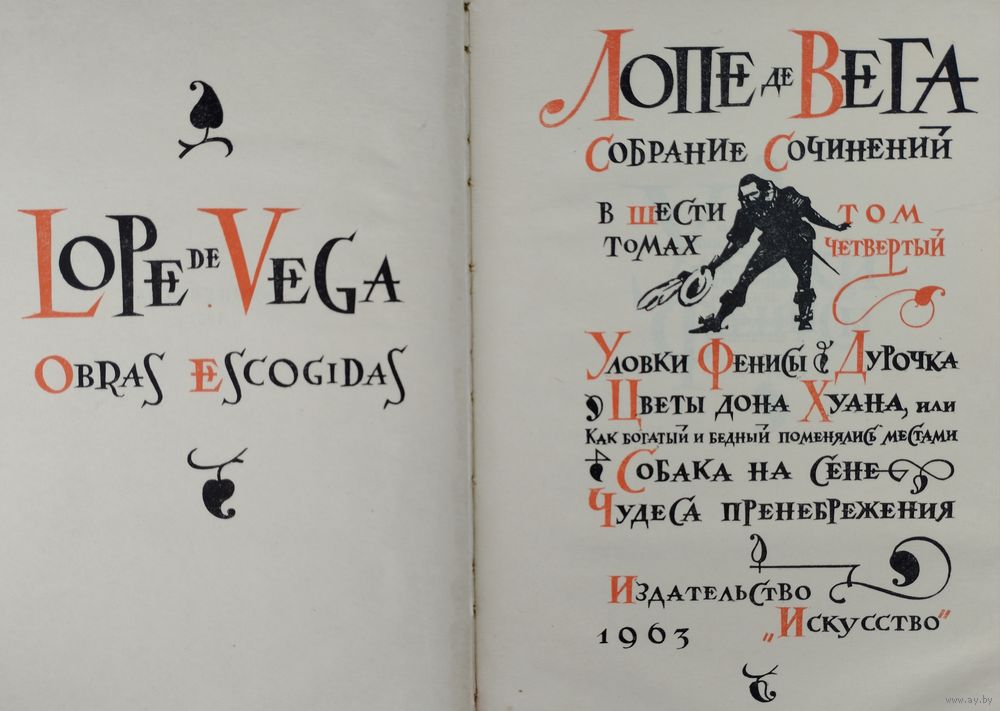 LOPE DE VEGA
OBRAS ESCOGIDAS
ЛОПЕ ДЕ ВЕГА
СОБРАНИЕ СОЧИНЕНИЙ
В ШЕСТИ
ТОМАХ
ТОМ
ЧЕТВЕРТЫЙ
УЛОВКИ ФЕНИСЫ ДУРОЧКА
ЦВЕТЫ ДОНА ХУАНА, ИЛИ
КАК БОГАТЫЙ И БЕДНЫЙ ПОМЕНЯЛИСЬ МЕСТАМИ
СОБАКА НА СЕНЕ
ЧУДЕСА ПРЕНЕБРЕЖЕНИЯ
ИЗДАТЕЛЬСТВО
1963 „ИСКУССТВО"
www.ay.by